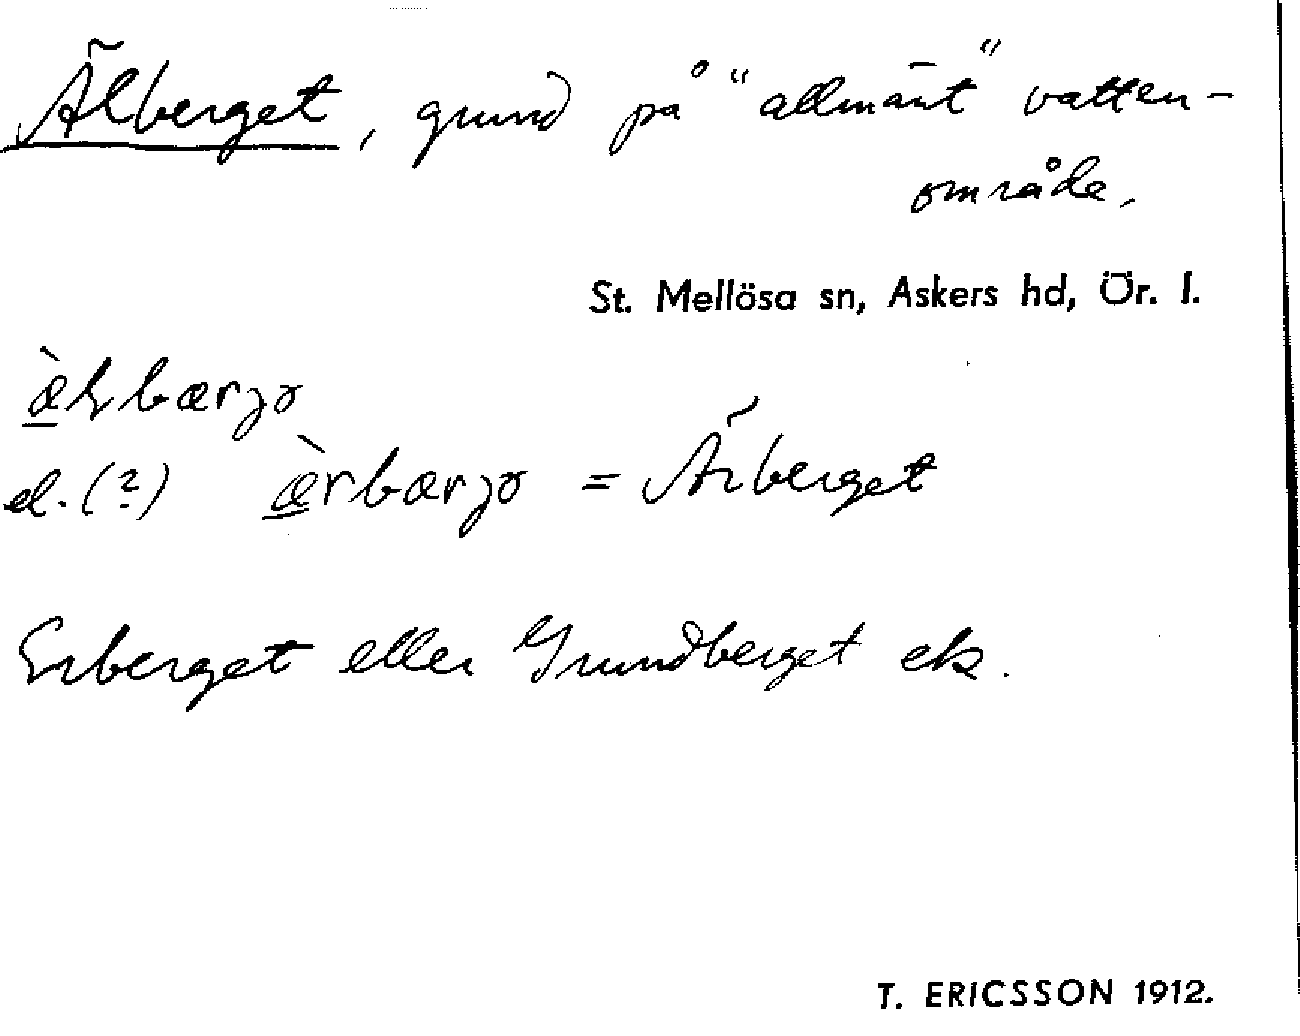 Älberget, grund på "allmänt" vatten-
område.
St. Mellösa sn, Askers hd, Ör. l.
el. (?) = Ärberget
Erberget eller Grundberget ek.
T. ERICSSON 1912.